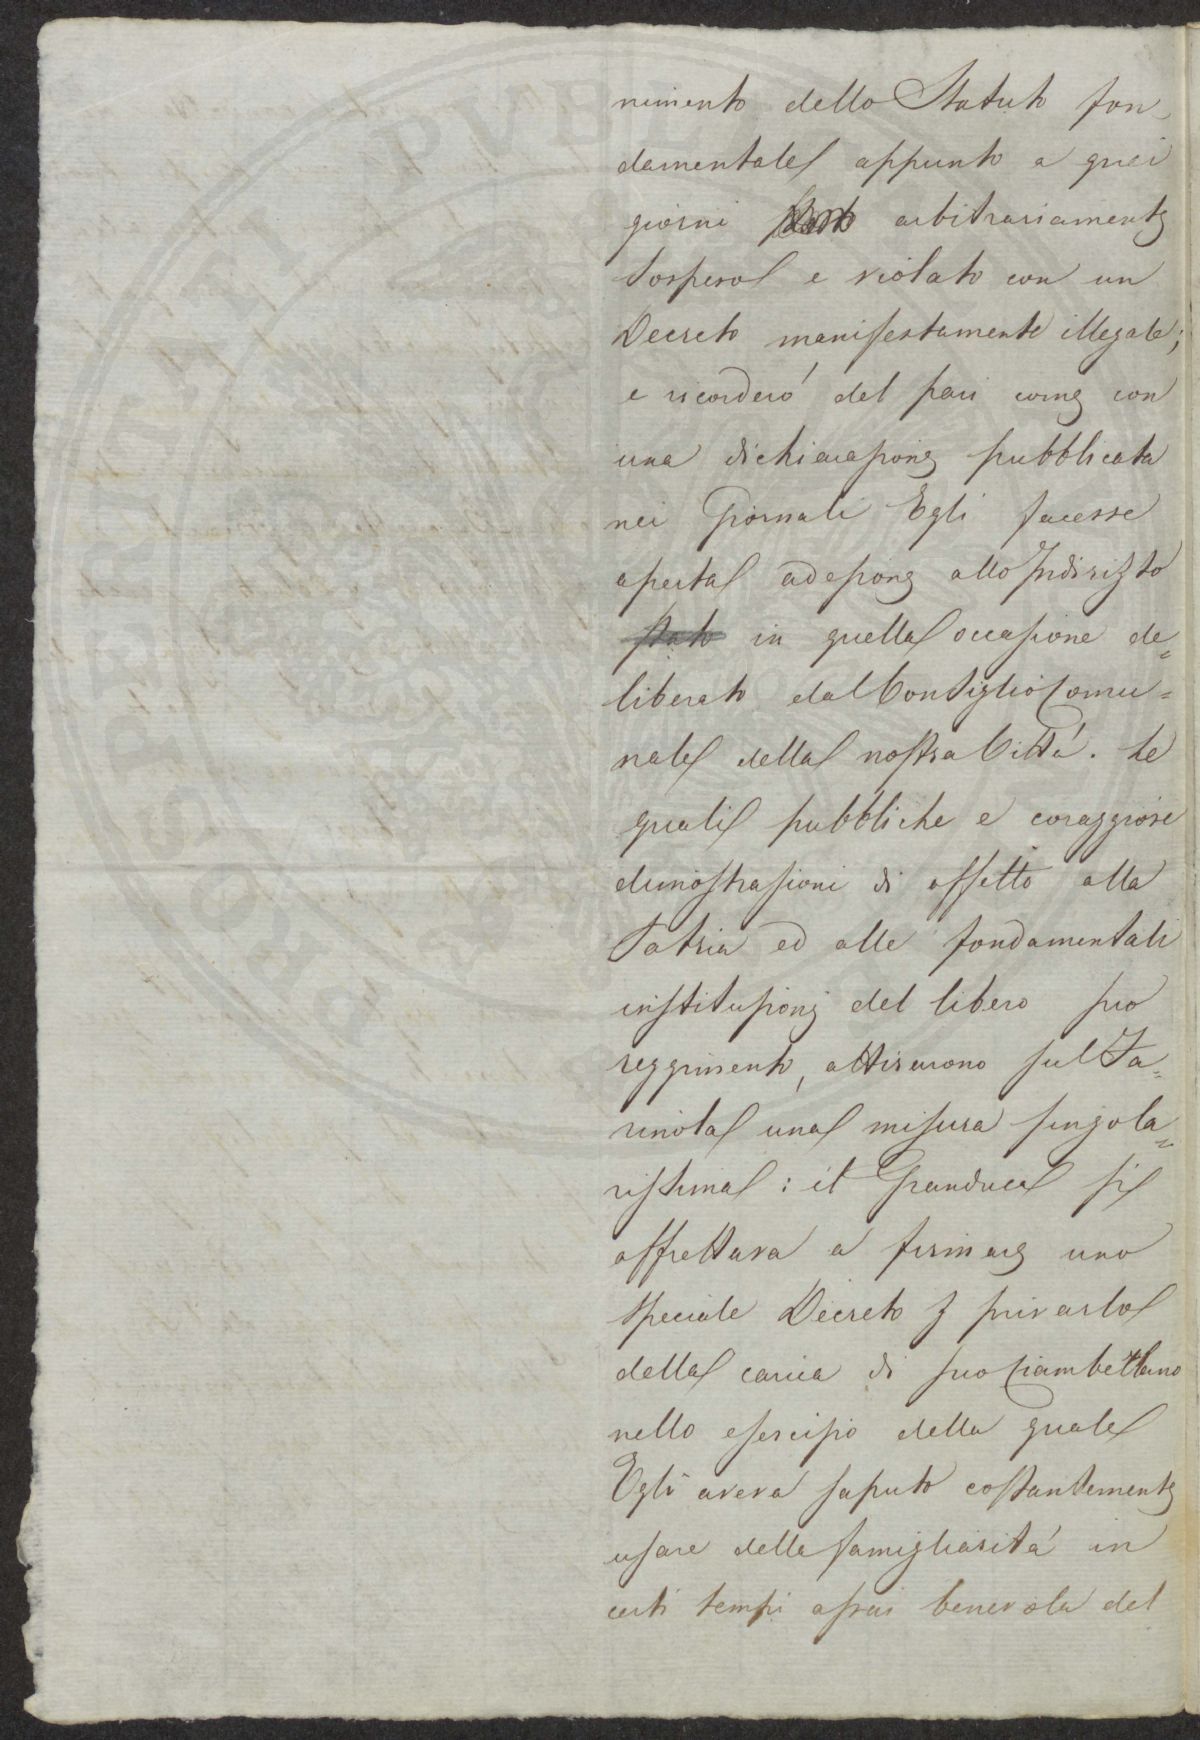 nimento dello Statuto fon-
damentale appunto a quei
giorni stato arbitrariamente
sospeso e violato con un
Decreto manifestamente illegale;
e ricorderò del pari come con
una dichiarazione pubblicata
nei Giornali Egli facesse
aperta adesione allo Indirizzo
stato in quella occasione de=
liberato dal Consiglio Comu=
nale della nostra Città. Le
quali pubbliche e coraggiose
dimostrazioni di affetto alla
Patria ed alle fondamentali
instituzioni del libero suo
reggimento, attirarono sul Ta=
rinola una misura singola=
rissima: il Granduca si
affrettava a firmare uno
speciale Decreto p privarlo
della carica di suo Ciambellano
nello esercizio della quale
Egli aveva saputo costantemente
usare della famigliarità in
certi tempi assai benevola del